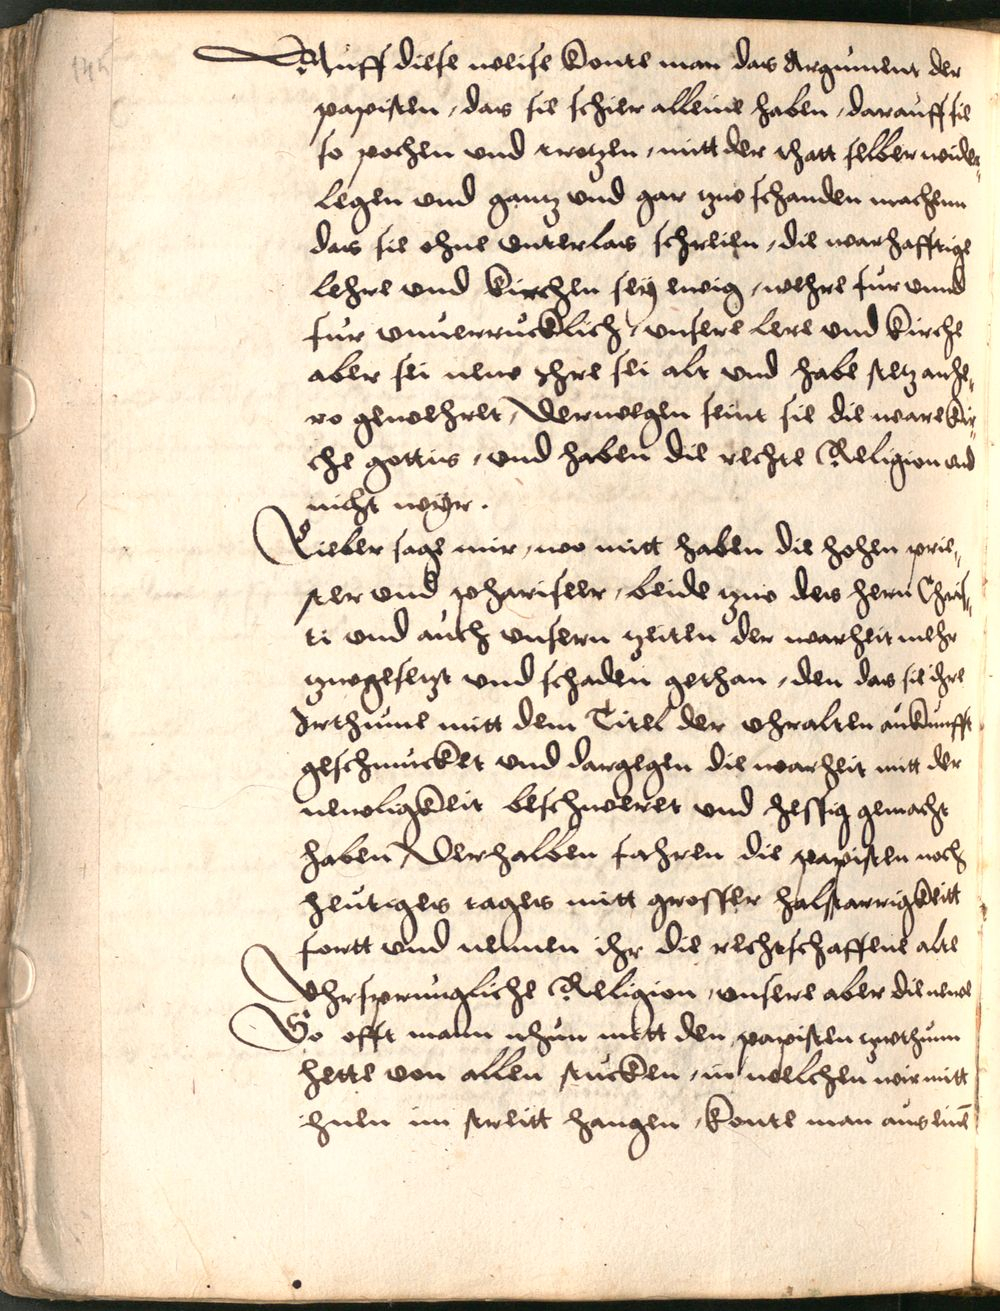 Auff diese weise konte man das Argument der
papisten, das sie schier alleine haben, darauff sie
so pochen und trotzen, mitt der thatt selber wider-
legen und gantz und gar zuo schanden machenn
das sie ohne unterlas schreien, die warhafftige
lehre und kirchen sey ewig, wehre fur unnd
fur unuerrucklich, unsere lere und kirche
aber sei neue ihre sei alt und habe stetz anhe-
ro gewehret, Derwegen seint sie die ware kir-
che gottis, und haben die rechte Religion und
nicht wyr.
Lieber sage mir, wo mitt haben die hohen prie-
ster und phariseer, beide zuo des hern Chris-
ti und auch unsern zeiten der warheit mehr
zuogesetzt und schaden gethan, den das sie ihre
Irthume mitt dem Titel der uhralten ankunfft
geschmucket und dargegen die warheit mitt der
newligkeit beschweret und hessig gemacht
haben, Derhalben fahren die papisten noch
heutiges tages mitt grosser halstarrigkeitt
fortt und nennen ihr die rechtschaffene alte
Uhrsprungliche Religion, unsere aber die newe
So offt mann nhun mitt den papisten zuthunn
hette von allen stucken, in welchen wir mitt
ihnen im streitt hangen, konte man aus einē